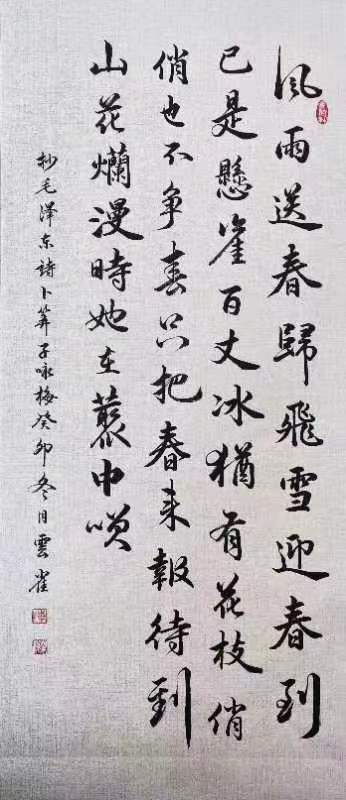 風雨送春歸飛雪迎春到
已是懸崖百丈冰猶有花枝俏
俏也不争春只把春来報待到
山花爛漫時她在叢中咲
抄毛泽东詩卜算子咏梅癸卯冬月雲雀